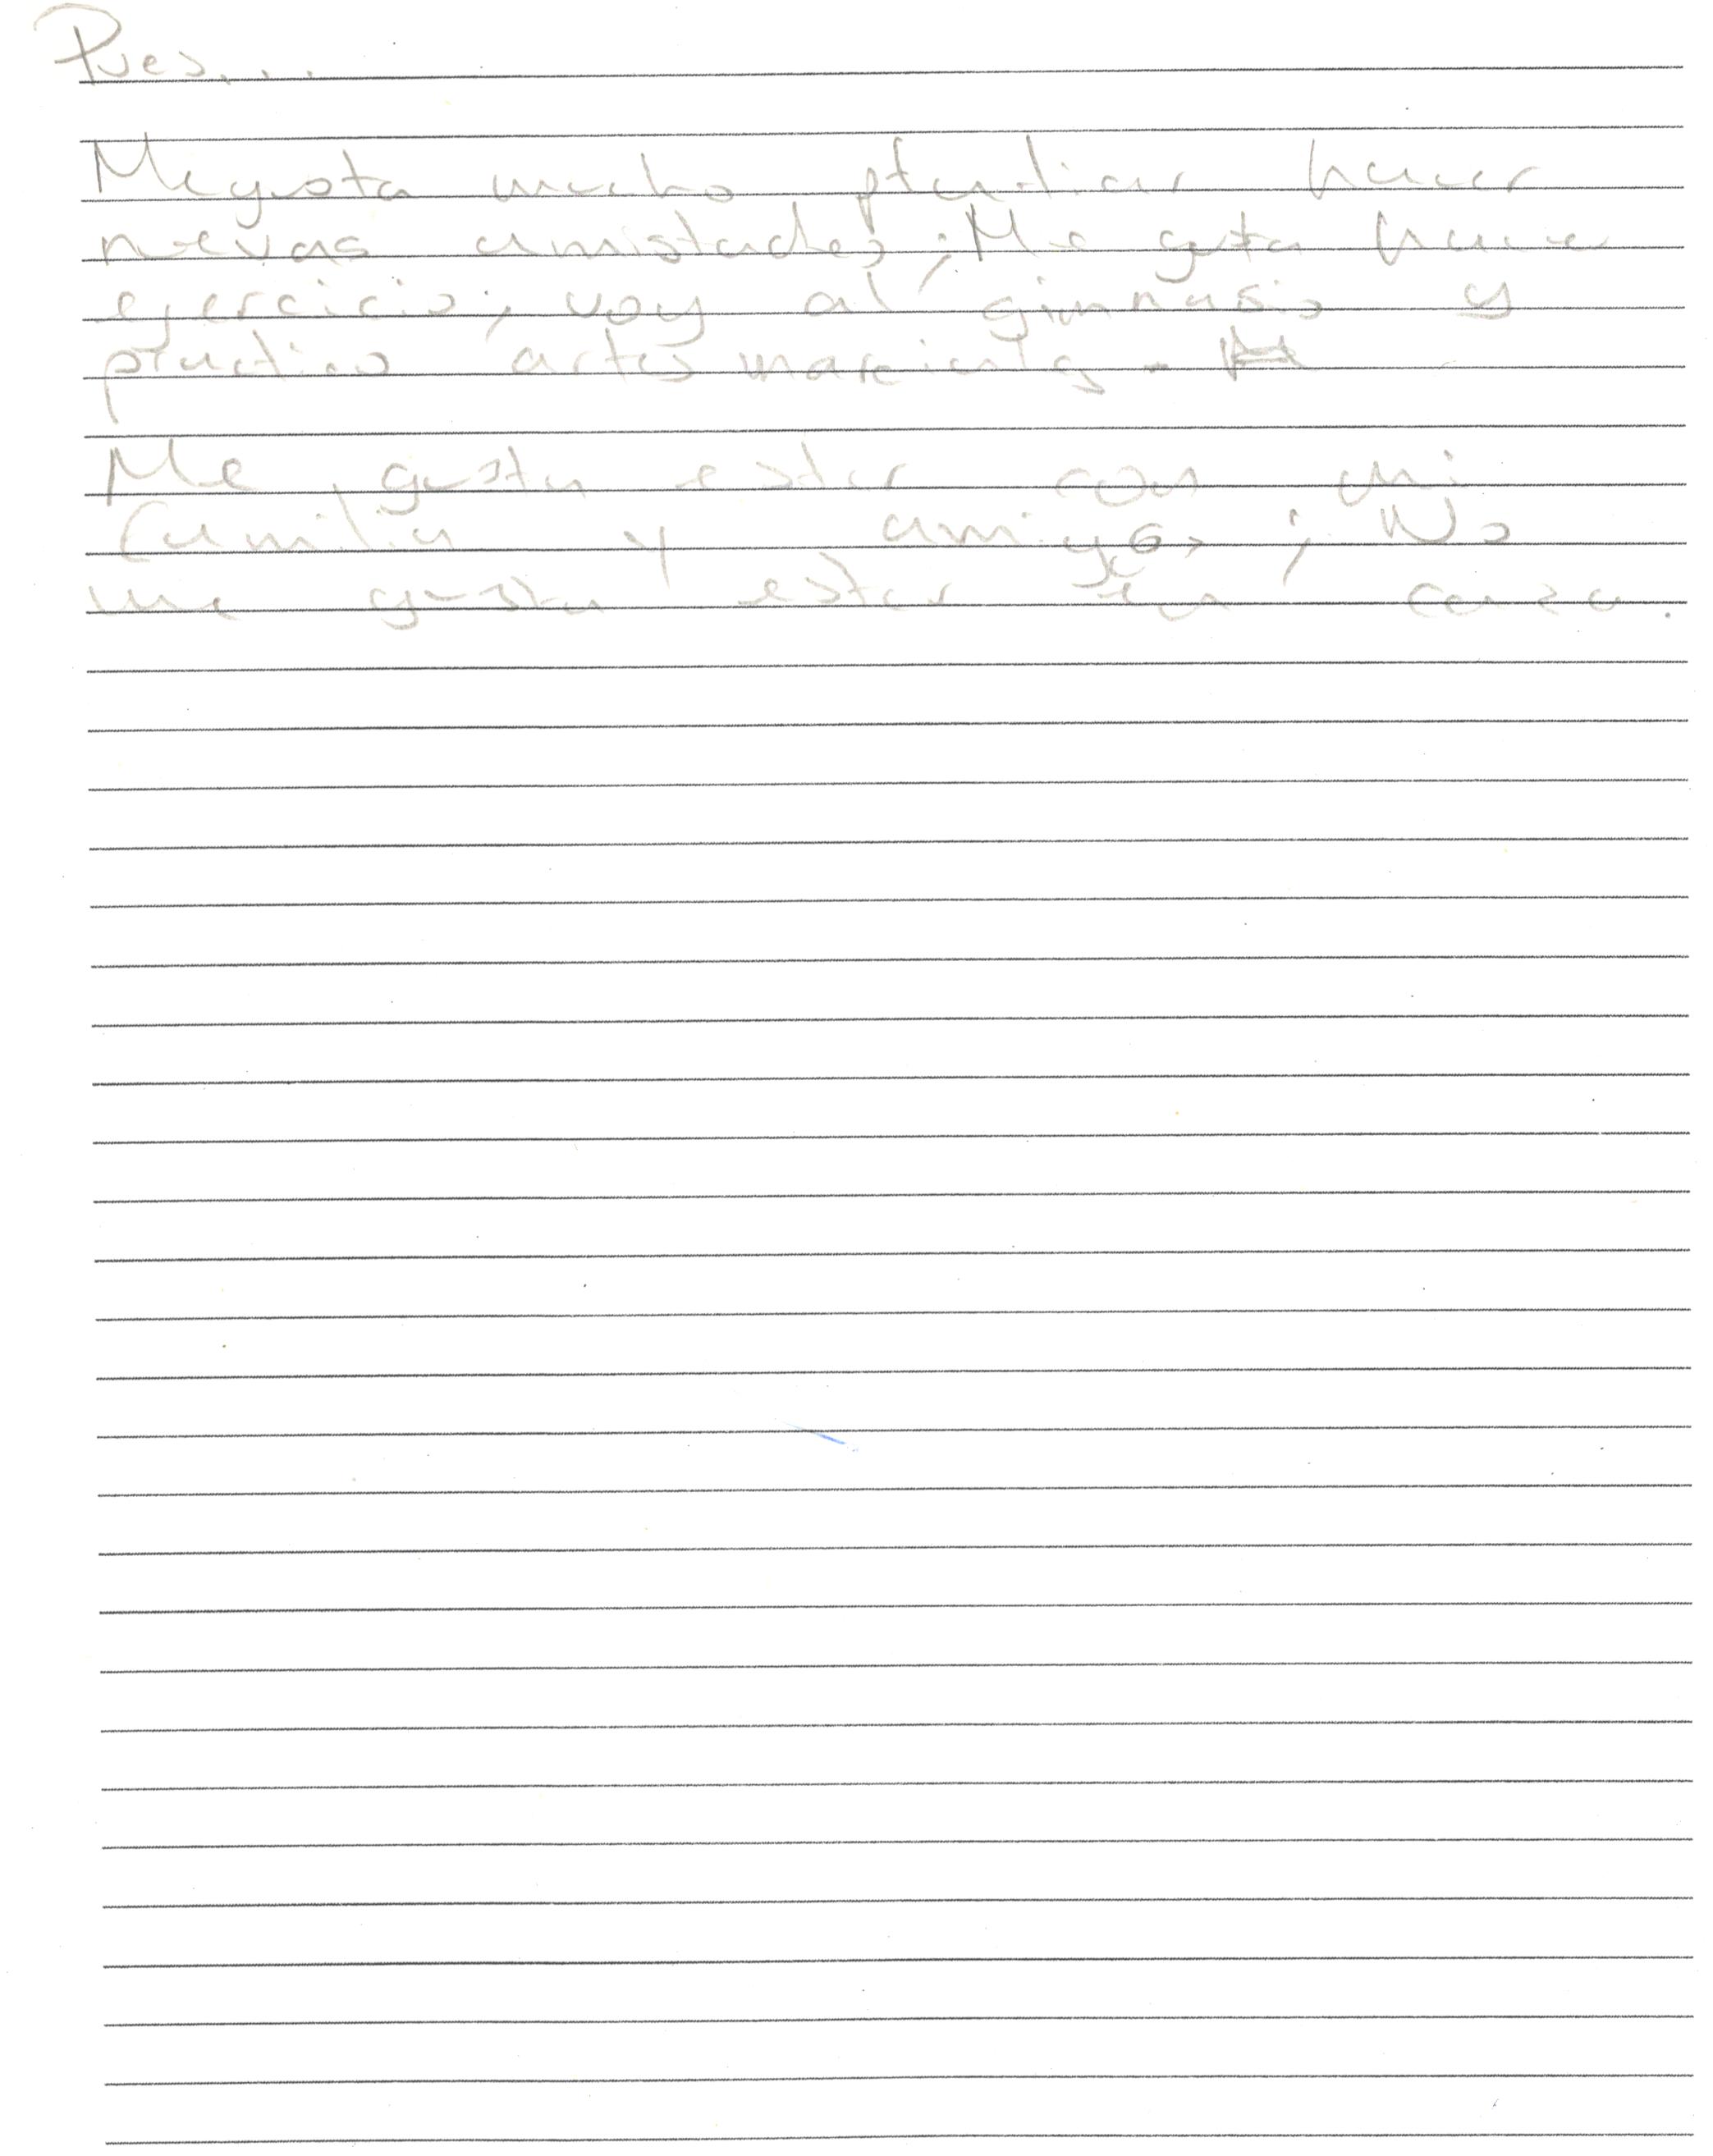 Pues...
Me gusta mucho platicar hacer
nuevas amistades; Me gusta hacer
ejercicio; voy al gimnasio y
practico artes marciales.
Me gusta estar con mi
familia y amigos; No
me gusta estar en casa.